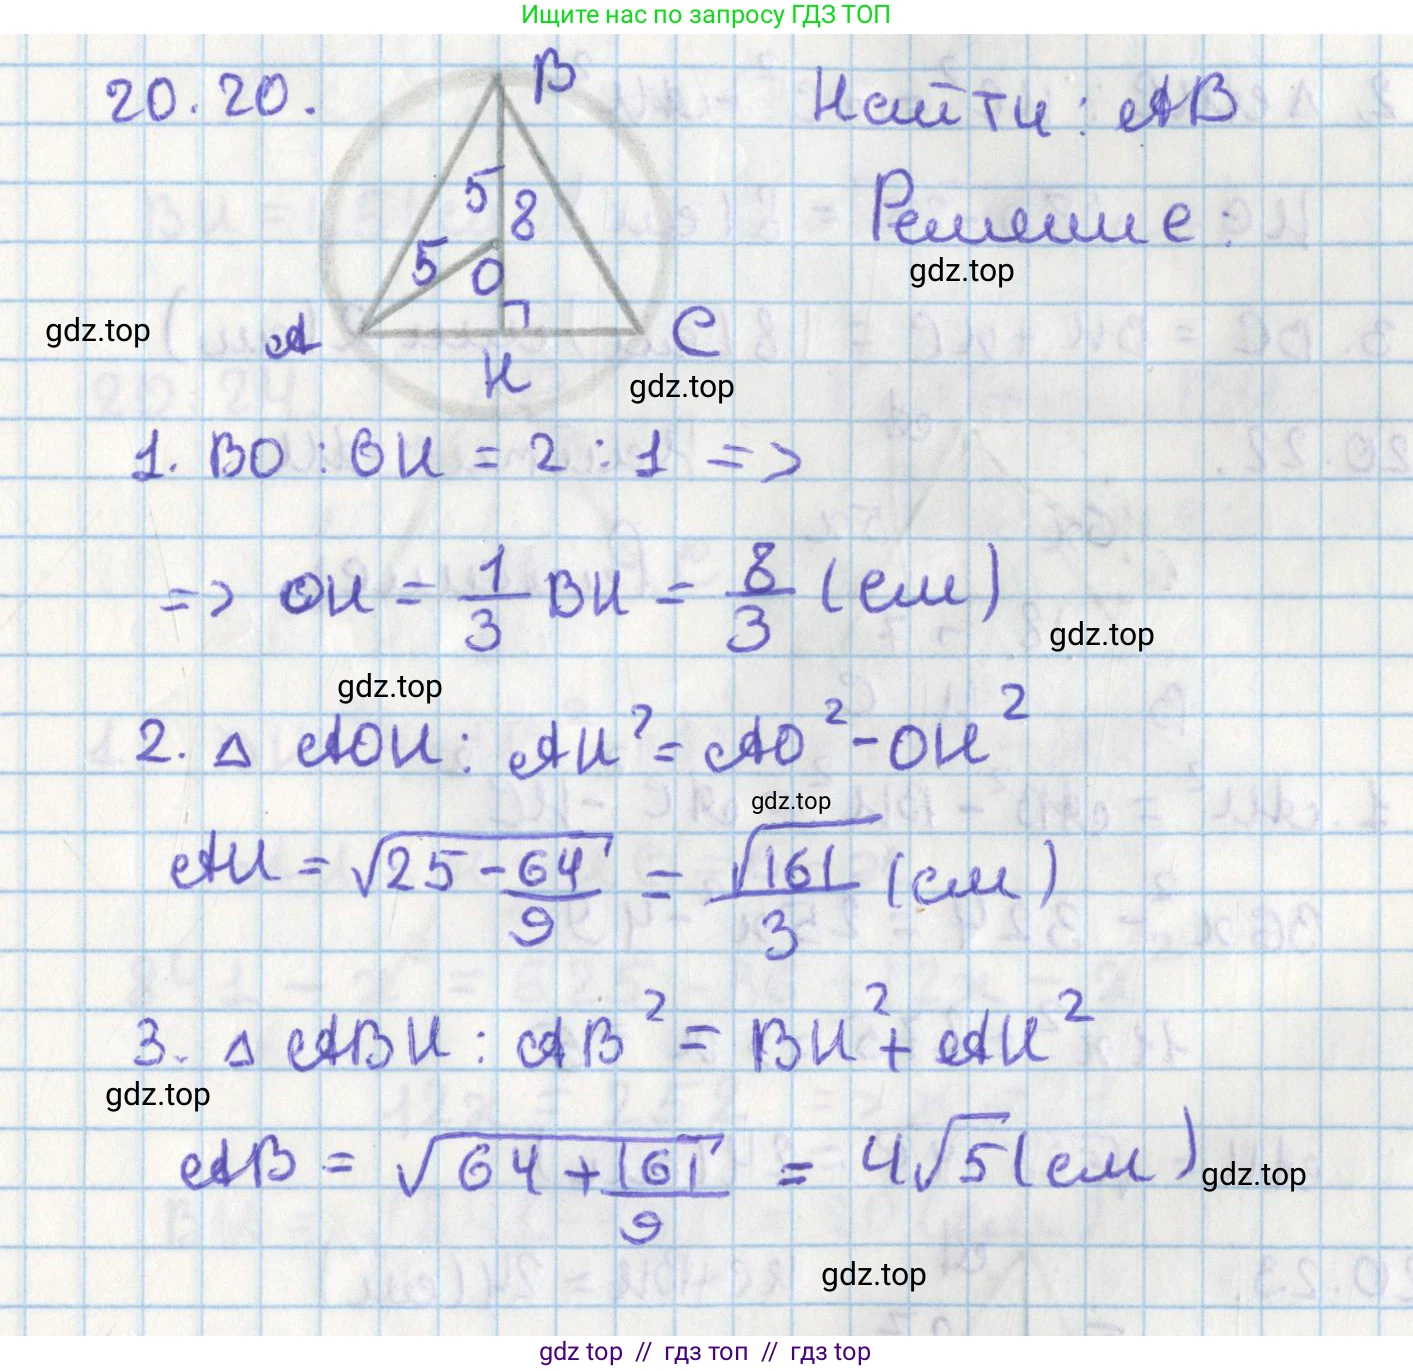 Ищите нас по запросу ГДЗ ТОП
20.20.
B
Найти: AB
5
8
Решение:
5
O
gdz.top
gdz.top
A
C
H
gdz.top
1. BO : OH = 2 : 1 =>
=> OH = 1/3 BH = 8/3 (см)
gdz.top
gdz.top
2. △ AOH: AH² = AO² - OH²
gdz.top
AH = √(25 - 64/9) = √161/3 (см)
3. △ ABH: AB² = BH² + AH²
gdz.top
AB = √(64 + 161/9) = 4√5 (см)
gdz.top
gdz.top
gdz top // гдз топ // гдз top